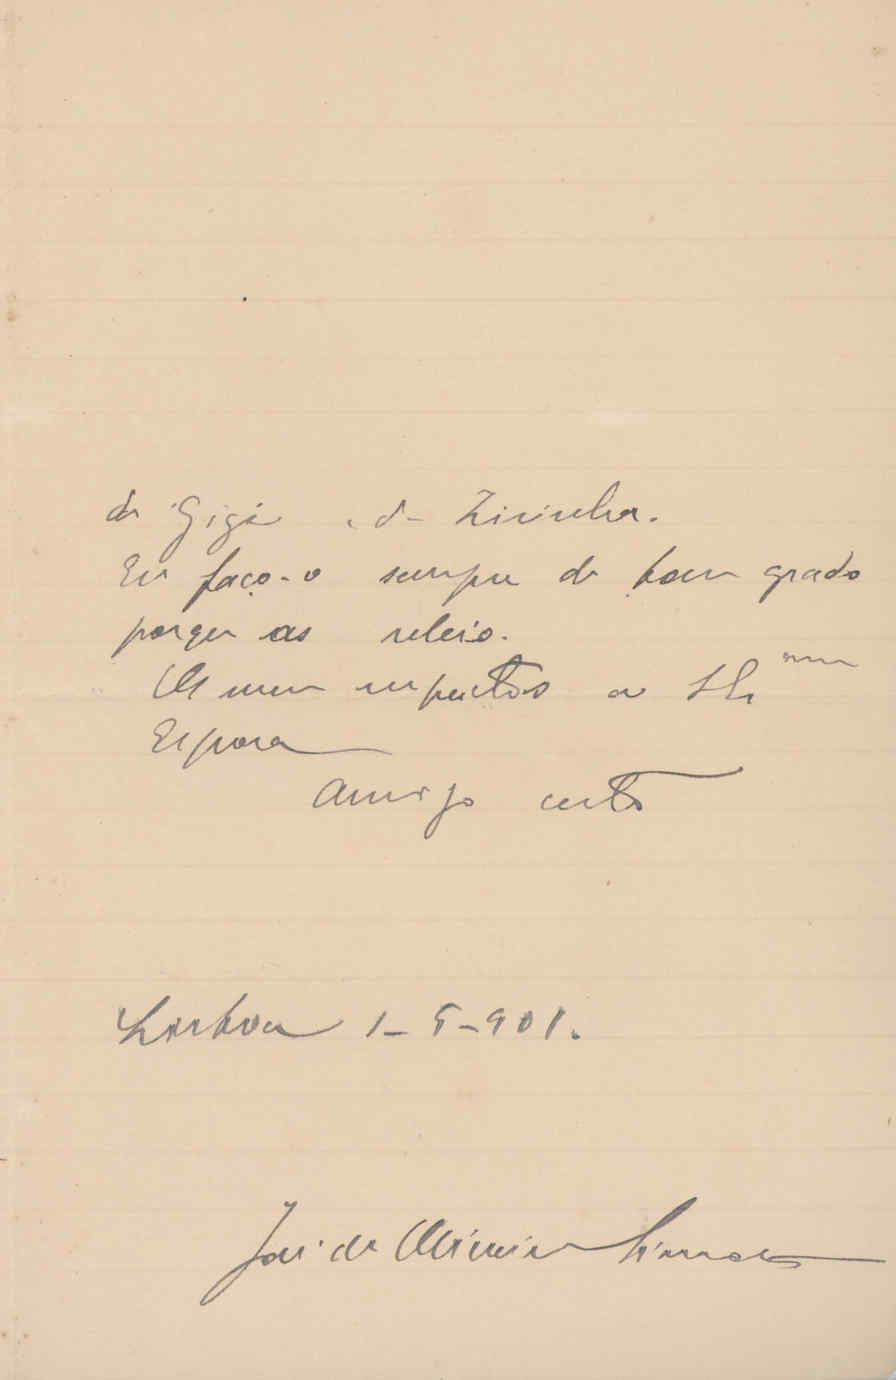 da Gigi e da Zizinha.
Eu faço-o sempre de bom grado
porque as releio.
Os meus respeitos a
Esposa
Amigo certo
Lisboa 1-5-901.
José de Oliveira Simões